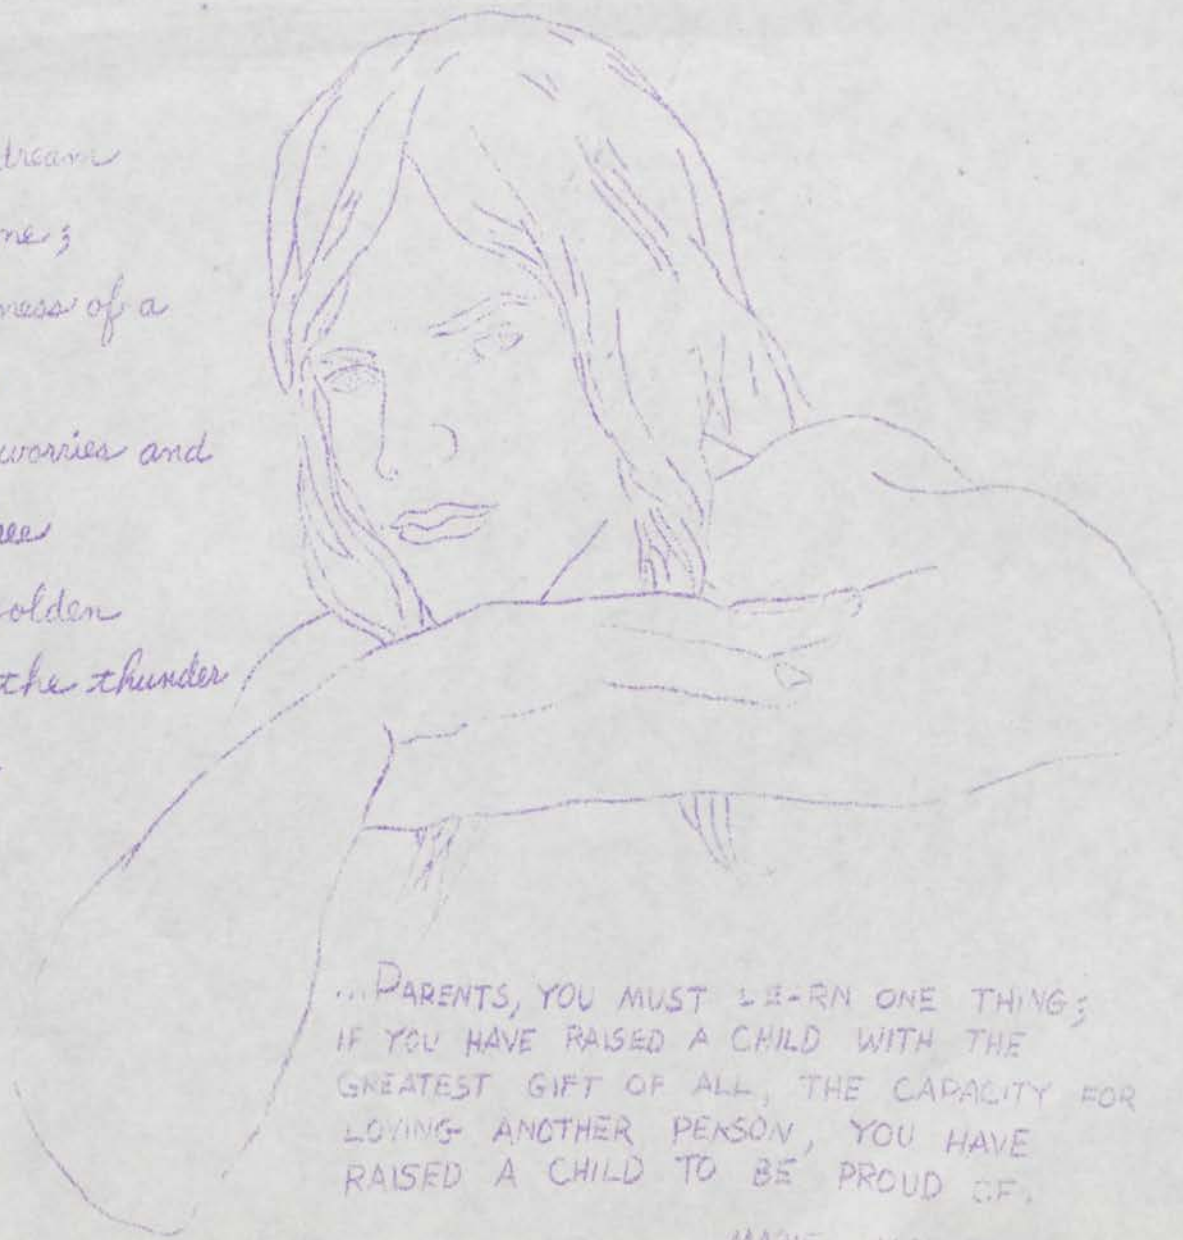 dream
me;
ness of a
worries and
olden
the thunder
...PARENTS, YOU MUST LEARN ONE THING;
IF YOU HAVE RAISED A CHILD WITH THE
GREATEST GIFT OF ALL, THE CAPACITY FOR
LOVING ANOTHER PERSON, YOU HAVE
RAISED A CHILD TO BE PROUD OF.